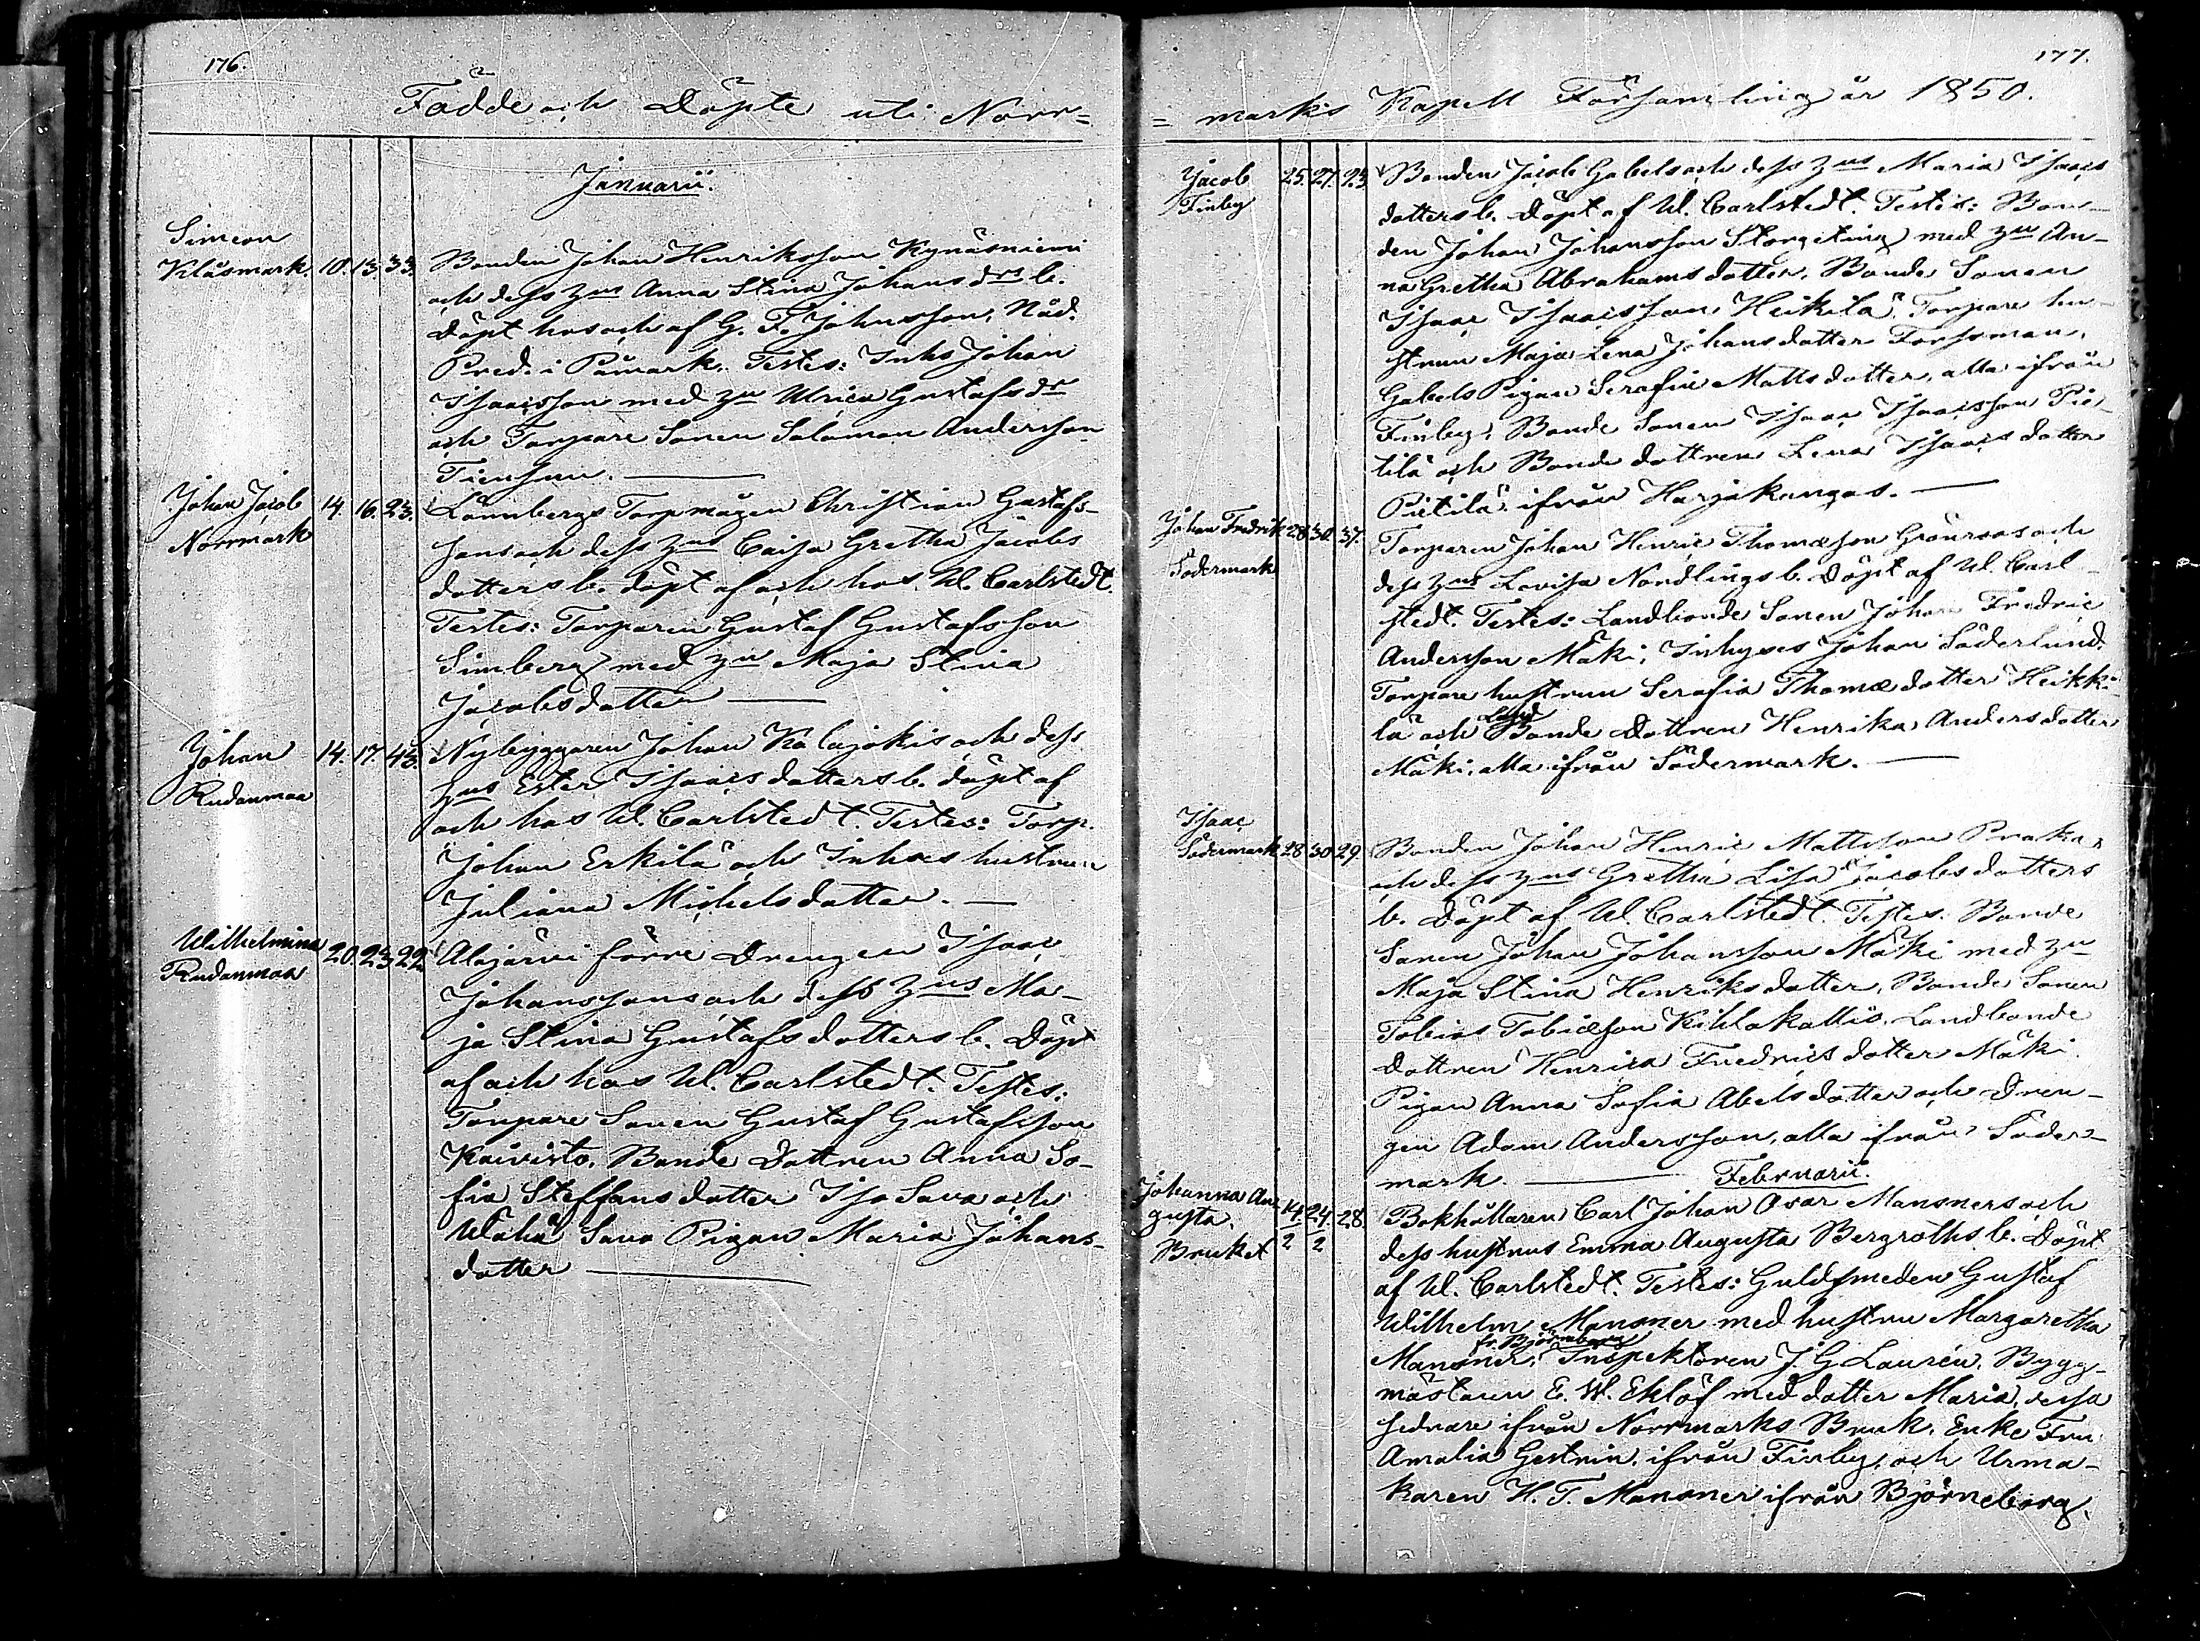 176.
Födde och Döpte uti Norr=
Januarii.
Simeon
Klåsmark 10. 13. 33. Bonden Johan Henriksson Kynäsniemi
och dess zus Anna Stina Johans drs b.
Döpt hos och af G. F. Johnsson, Nåd.
Pred. i Påmark. Testes: Inhs Johan
Isaacsson med zu Ulrica Gustafs dr
och Torpare Sonen Salomon Andersson
Tiensuu.
Johan Jacob 14. 16. 23. Lönnbergs Torpmågen Christian Gustafs-
Norrmark sons och dess zus Caisa Gretha Jacobs
dotters b. döpt af och hos W. Carlstedt.
Testes: Torparen Gustaf Gustafsson
Simberg med zu Maja Stina
Jacobsdotter
Johan 14. 17. 43. Nybyggaren Johan Kalajokis och dess
Rudanmaa hus Ester Isaacs dotters b. döpt af
och hos W. Carlstedt. Testes: Torp.
Johan Erkilä och Inhses hustrun
Juliana Michels dotter.
Wilhelmina 20. 23. 22. Alajärvi förre Drengen Isaac
Rudanmaa Johanssons och dess zus Ma-
ja Stina Gustafs dotters b. Döpt
af och hos W. Carlstedt. Testes:
Torpare Sonen Gustaf Gustafsson
Koivisto. Bonde Dottren Anna So-
fia Steffans dotter Iso Sava och
Wähä Sava Pigan Maria Johans-
dotter
177.
= marks Kapell Församling år 1850.
Jacob 25. 27. 23. Bonden Jacob Gabels och dess zus Maria Isaacs
Finby dotters b. Döpt af W. Carlstedt. Testes: Bon-
den Johan Johansson Storgeting med zu An-
na Gretha Abrahams dotter, Bonde Sonen
Isaac Isaacsson Heikilä, Torpare hu-
strun Maja Lena Johans dotter Forssman,
Gabels Pigan Serafia Matts dotter, alla ifrån
Finby, Bonde Sonen Isaac Isaacsson Pie-
tilä och Bonde dottren Lena Isaacs dotter
Pietilä ifrån Harjakangas.
Johan Fredrik 28. 30. 37. Torparen Johan Henric Thomæson Grönroos och
Södermark dess zus Lovisa Nordlings b. Döpt af W. Carl-
stedt. Testes: Landbonde Sonen Johan Fredric
Andersson Mäki, Inhyses Johan Söderlund,
Torpare hustrun Serafia Thomæ dotter Heikki-
lä och Land Bonde Dottren Henrika Anders dotter
Mäki, alla ifrån Södermark.
Isaac
Södermark 28. 30. 29. Bonden Johan Henric Mattsson Prakas
och dess zus Gretha Lisa Jacobs dotters
b. Döpt af W. Carlstedt. Testes: Bonde
Sonen Johan Johansson Mäki med zu
Maja Stina Henriks dotter, Bonde Sonen
Tobias Tobiæson Kihlakallio. Landbonde
Dottren Henrica Fredrics dotter Mäki
Pigan Anna Sofia Abels dotter och Dren-
gen Adam Andersson, alla ifrån Söder-
mark.
Februarii.
Johanna Au- 14/2 24/2 28. Bokhållaren Carl Johan Oscar Mansners och
gusta. dess hustrus Emma Augusta Bergroths b. Döpt
Bruket af W. Carlstedt. Testes: Guldsmeden Gustaf
Wilhelm Mansner med hustru Margaretha
Mansner, fr. Björneborg Inspektoren J. G. Laurén, Bygg-
mästaren E. W. Eklöf med dotter Maria, dessa
sednare ifrån Norrmarks Bruk, Enke Fru
Amalia Gestrin, ifrån Finby, och Urma-
karen H. T. Mansner ifrån Björneborg.